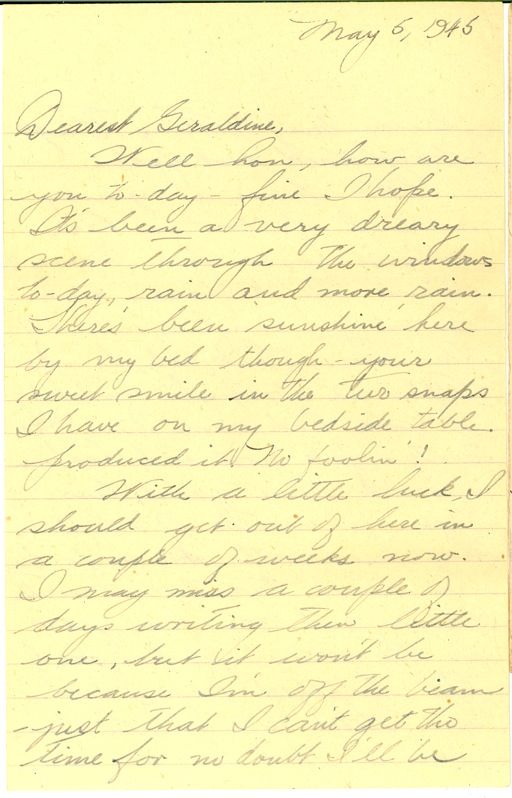 May 5, 1945
Dearest Geraldine,
Well hon, how are
you to-day - fine I hope.
It's been a very dreary
scene through the windows
to-day, rain and more rain.
There's been 'sunshine' here
by my bed though - your
sweet smile in the two snaps
I have on my bedside table
produced it. No foolin'!
With a little luck, I
should get out of here in
a couple of weeks now.
I may miss a couple of
days writing then little
one, but it won't be
because I'm off the beam
- just that I can't get the
time for no doubt I'll be